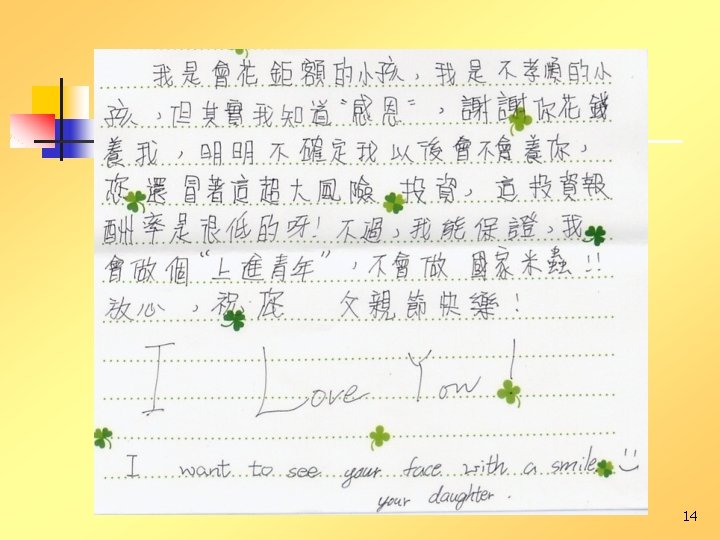 我是會花鉅額的小孩，我是不孝順的小
孩，但其實我知道“感恩”，謝謝你花錢
養我，明明不確定我以後會不會養你，
您還冒著這超大風險 投資，這投資報
酬率是很低的呀！不過，我能保證，我
會做個“上進青年”，不會做 國家米蟲!!
放心，祝您 父親節快樂！
I Love You!
I want to see your face with a smile
your daughter.
14